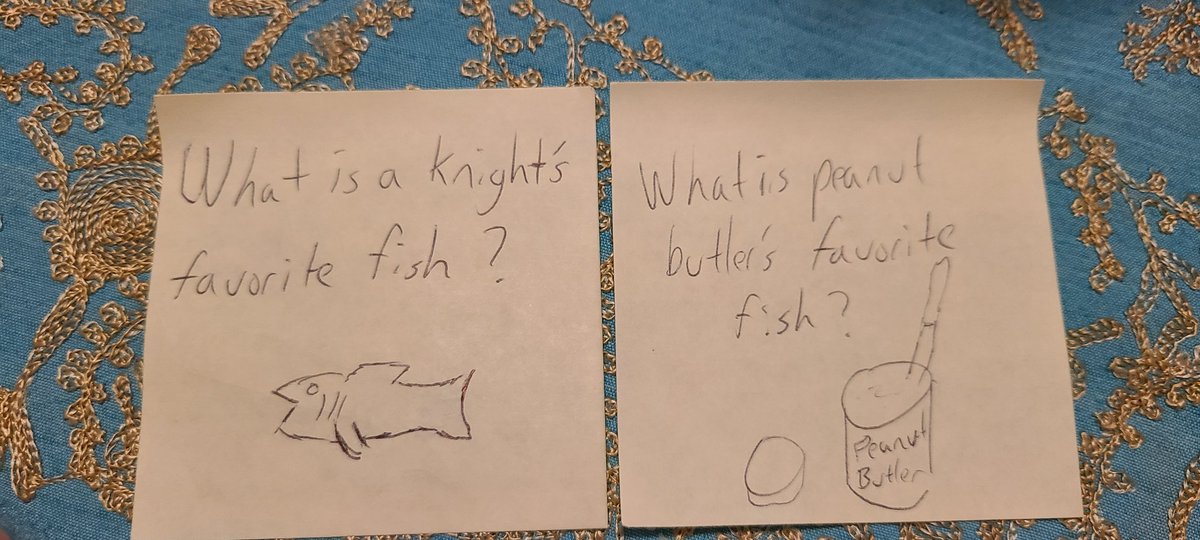 What is a knight's
favorite fish?
What is peanut
butler's favorite
fish?
Peanut
Butler